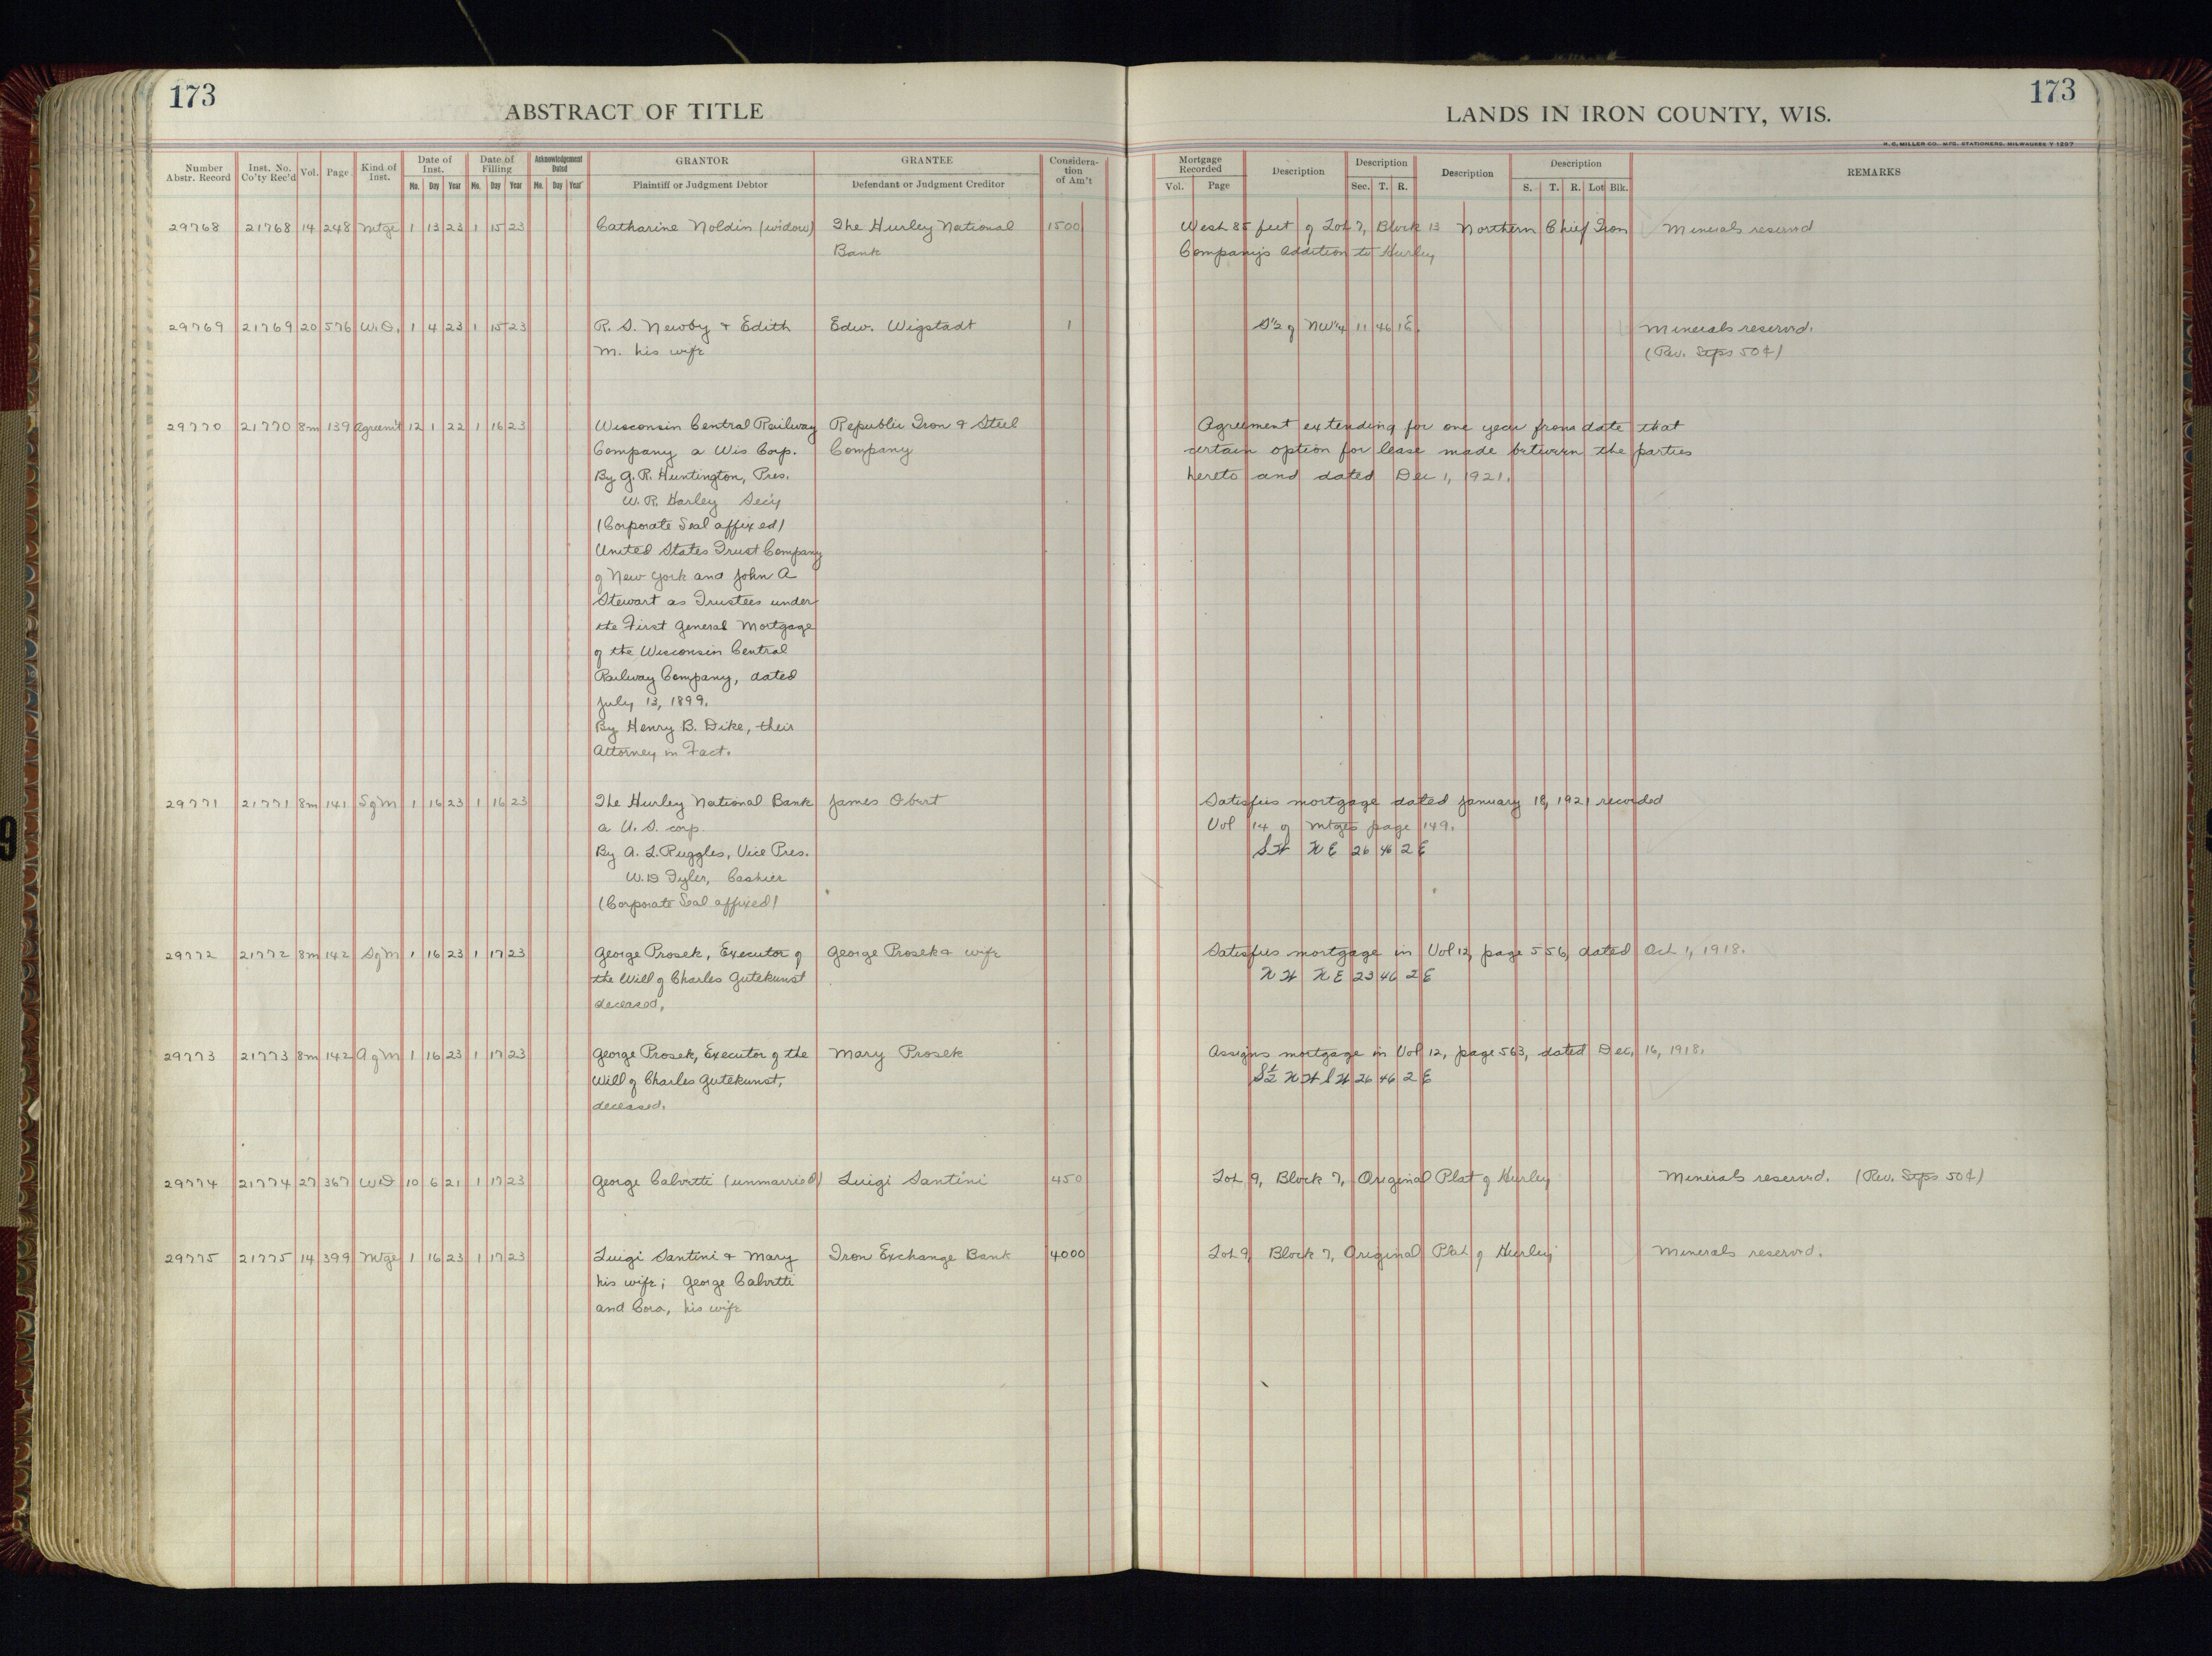 173
ABSTRACT OF TITLE
LANDS IN IRON COUNTY, WIS.
173
H. C. MILLER CO. MFG. STATIONERS, MILWAUKEE Y 1297
Number Abstr. Record | Inst. No. Co'ty Rec'd | Vol. | Page | Kind of Inst. | Date of Inst. Mo. Day Year | Date of Filling Mo. Day Year | Acknowledgement Dated Mo. Day Year | GRANTOR Plaintiff or Judgment Debtor | GRANTEE Defendant or Judgment Creditor | Considera-tion of Am't | Mortgage Recorded Vol. Page | Description | Description Sec. T. R. | Description | Description S. T. R. Lot Blk. | REMARKS
29768 21768 14 248 Mtge 1 13 23 1 15 23 Catharine Noldin (widow) The Hurley National 1500 West 85 feet of Lot 7, Block 13 Northern Chief Iron Minerals reserved
Bank Company's Addition to Hurley
29769 21769 20 576 W.D. 1 4 23 1 15 23 R. S. Newby & Edith Edw. Wigstadt 1 S½ of NW¼ 11 46 1E. Minerals reserved.
M. his wife (Rev. Stps 50¢)
29770 21770 8m 139 Agreem't 12 1 22 1 16 23 Wisconsin Central Railway Republic Iron & Steel Agreement extending for one year from date that
Company a Wis Corp. Company certain option for lease made between the parties
By G. R. Huntington, Pres. hereto and dated Dec 1, 1921.
W. R. Harley Sec'y
(Corporate Seal affixed)
United States Trust Company
of New York and John A
Stewart as Trustees under
the First General Mortgage
of the Wisconsin Central
Railway Company, dated
July 13, 1899.
By Henry B. Dike, their
Attorney in Fact.
29771 21771 8m 141 SofM 1 16 23 1 16 23 The Hurley National Bank James Obert Satisfies mortgage dated January 18, 1921 recorded
a U. S. corp. Vol 14 of mtges page 149.
By A. L. Ruggles, Vice Pres. SW NE 26 46 2 E
W. D Tyler, Cashier
(Corporate Seal affixed)
29772 21772 8m 142 SofM 1 16 23 1 17 23 George Prosek, Executor of George Prosek & wife Satisfies mortgage in Vol 12, page 556, dated Oct 1, 1918.
the Will of Charles Gutekunst NW NE 23 46 2 E
deceased,
29773 21773 8m 142 AofM 1 16 23 1 17 23 George Prosek, Executor of the Mary Prosek Assigns mortgage in Vol 12, page 563, dated Dec. 16, 1918.
Will of Charles Gutekunst, S½ NW SW 26 46 2 E
deceased.
29774 21774 27 367 WD 10 6 21 1 17 23 George Calvetti (unmarried) Luigi Santini 450 Lot 9, Block 7, Original Plat of Hurley Minerals reserved. (Rev. Stps 50¢)
29775 21775 14 399 Mtge 1 16 23 1 17 23 Luigi Santini & Mary Iron Exchange Bank 4000 Lot 9, Block 7, Original Plat of Hurley Minerals reserved.
his wife; George Calvetti
and Cora, his wife